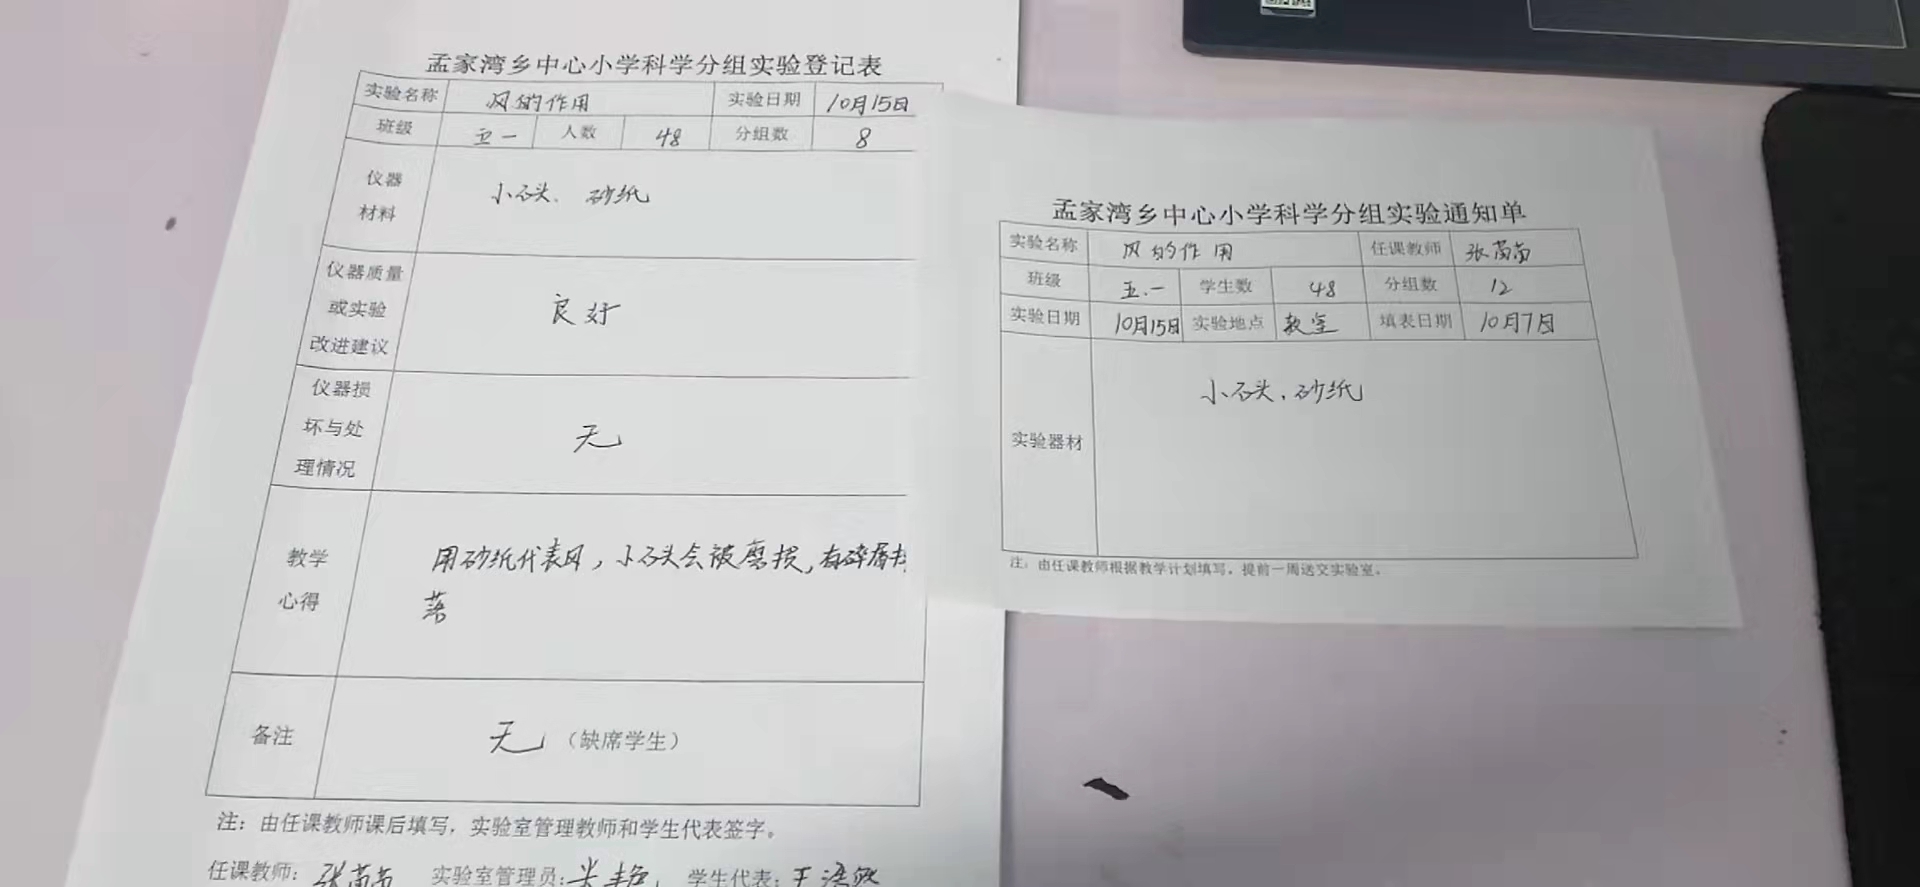 孟家湾乡中心小学科学分组实验登记表
实验名称 风的作用 实验日期 10月15日
班级 五一 人数 48 分组数 8
仪器
材料
小石头、砂纸
仪器质量
或实验
改进建议
良好
仪器损
坏与处
理情况
无
教学
心得
用砂纸代表风，小石头会被磨损，有碎屑
落
备注 无（缺席学生）
注：由任课教师课后填写，实验室管理教师和学生代表签字。
任课教师： 实验室管理员： 学生代表：
孟家湾乡中心小学科学分组实验通知单
实验名称 风的作用 任课教师 张
班级 五.一 学生数 48 分组数 12
实验日期 10月15日 实验地点 教室 填表日期 10月7日
实验器材 小石头、砂纸
注：由任课教师根据教学计划填写，提前一周送交实验室。